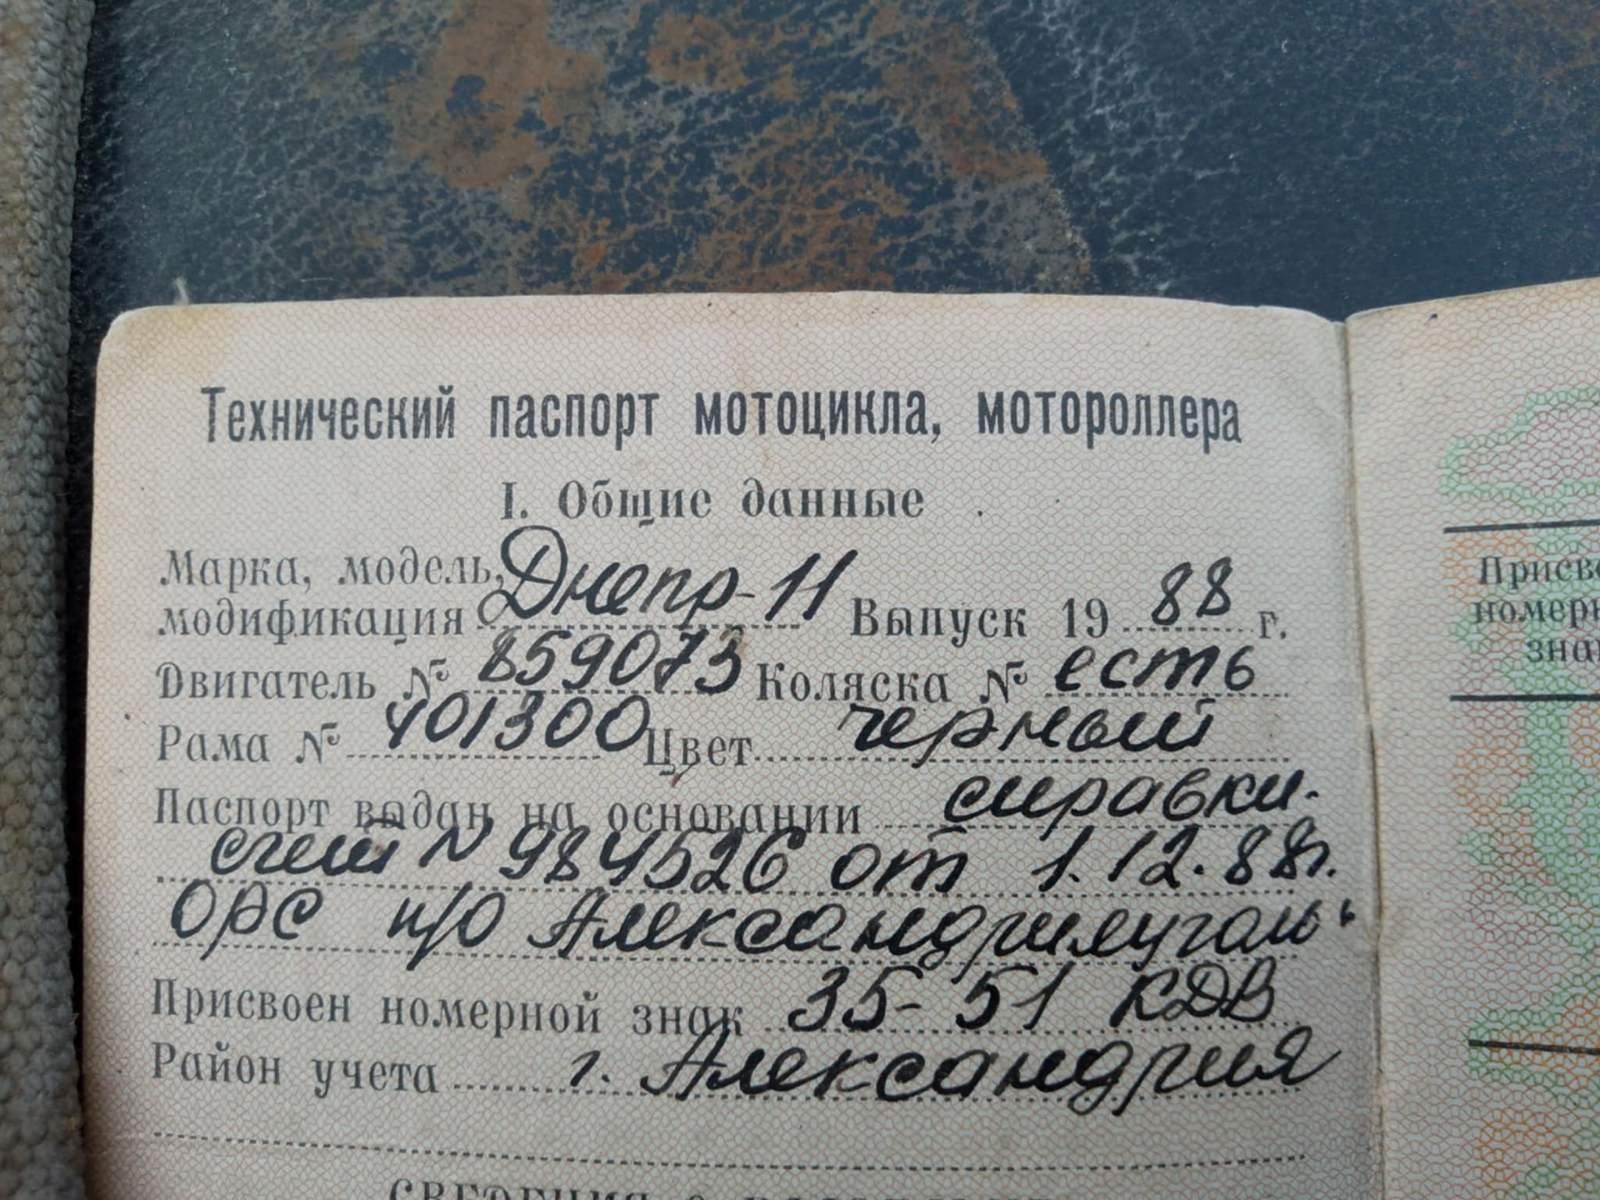 Технический паспорт мотоцикла, мотороллера
I. Общие данные
Марка, модель, Днепр-11
модификация Выпуск 19 88 г.
Двигатель № 859073 Коляска № есть
Рама № 401300 Цвет черный
Паспорт выдан на основании справки-
счет N 984526 от 1.12.88г.
ОРС п/о Александрияуголь"
Присвоен номерной знак 35-51 КДВ
Район учета г. Александрия